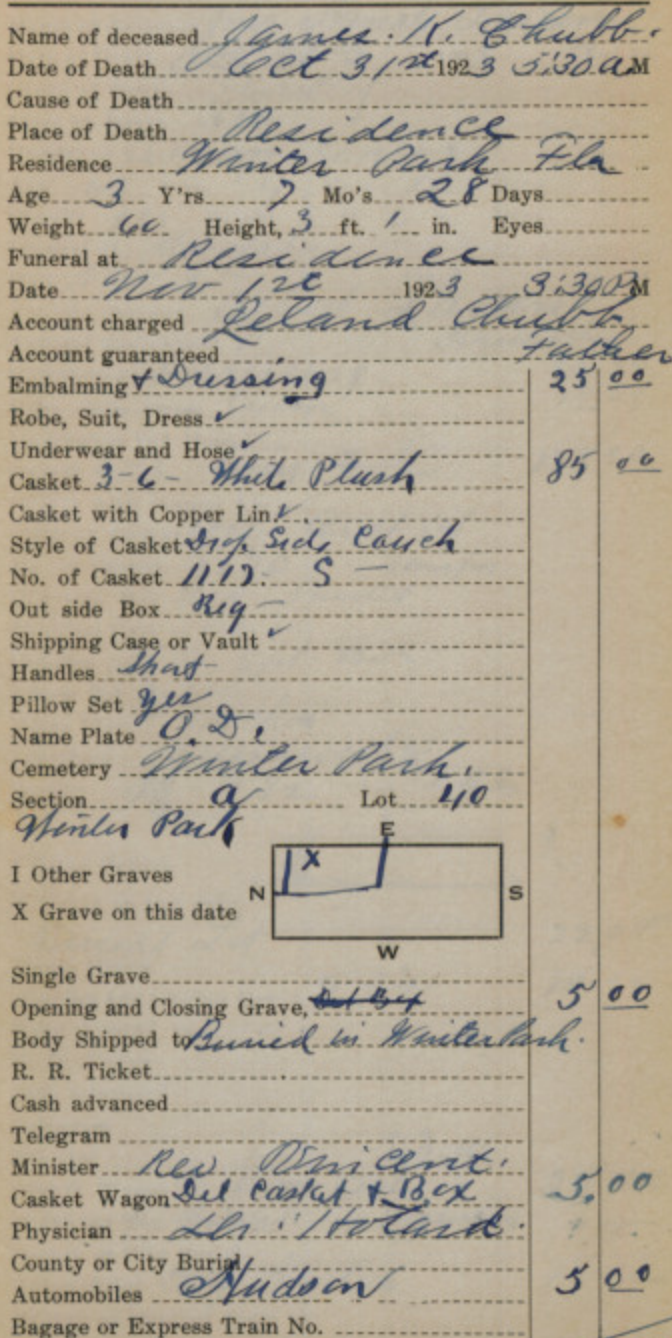 Name of deceased James. K. Chubb.
Date of Death Oct 31st 1923 5:30 a.M
Cause of Death
Place of Death Residence
Residence Winter Park Fla
Age 3 Y'rs 7 Mo's 28 Days
Weight 60 Height, 3 ft. 1 in. Eyes
Funeral at Residence
Date Nov 1st 1923 3:30 PM
Account charged Leland Chubb
Account guaranteed Father
Embalming & Dressing 25 00
Robe, Suit, Dress ✓
Underwear and Hose ✓
Casket 3-6- White Plush 85 00
Casket with Copper Lin. ✓
Style of Casket Drop Side Couch
No. of Casket S —
Out side Box Reg —
Shipping Case or Vault ✓
Handles Short
Pillow Set yes
Name Plate O. D.
Cemetery Winter Park.
Section a Lot 40
Winter Park
E
I Other Graves
X
N
S
X Grave on this date
W
Single Grave
Opening and Closing Grave, 5 00
Body Shipped to Buried in Winter Park.
R. R. Ticket
Cash advanced
Telegram
Minister Rev
Casket Wagon Del Casket & Box 5.00
Physician Dr.
County or City Burial
Automobiles Hudson 5 00
Bagage or Express Train No.